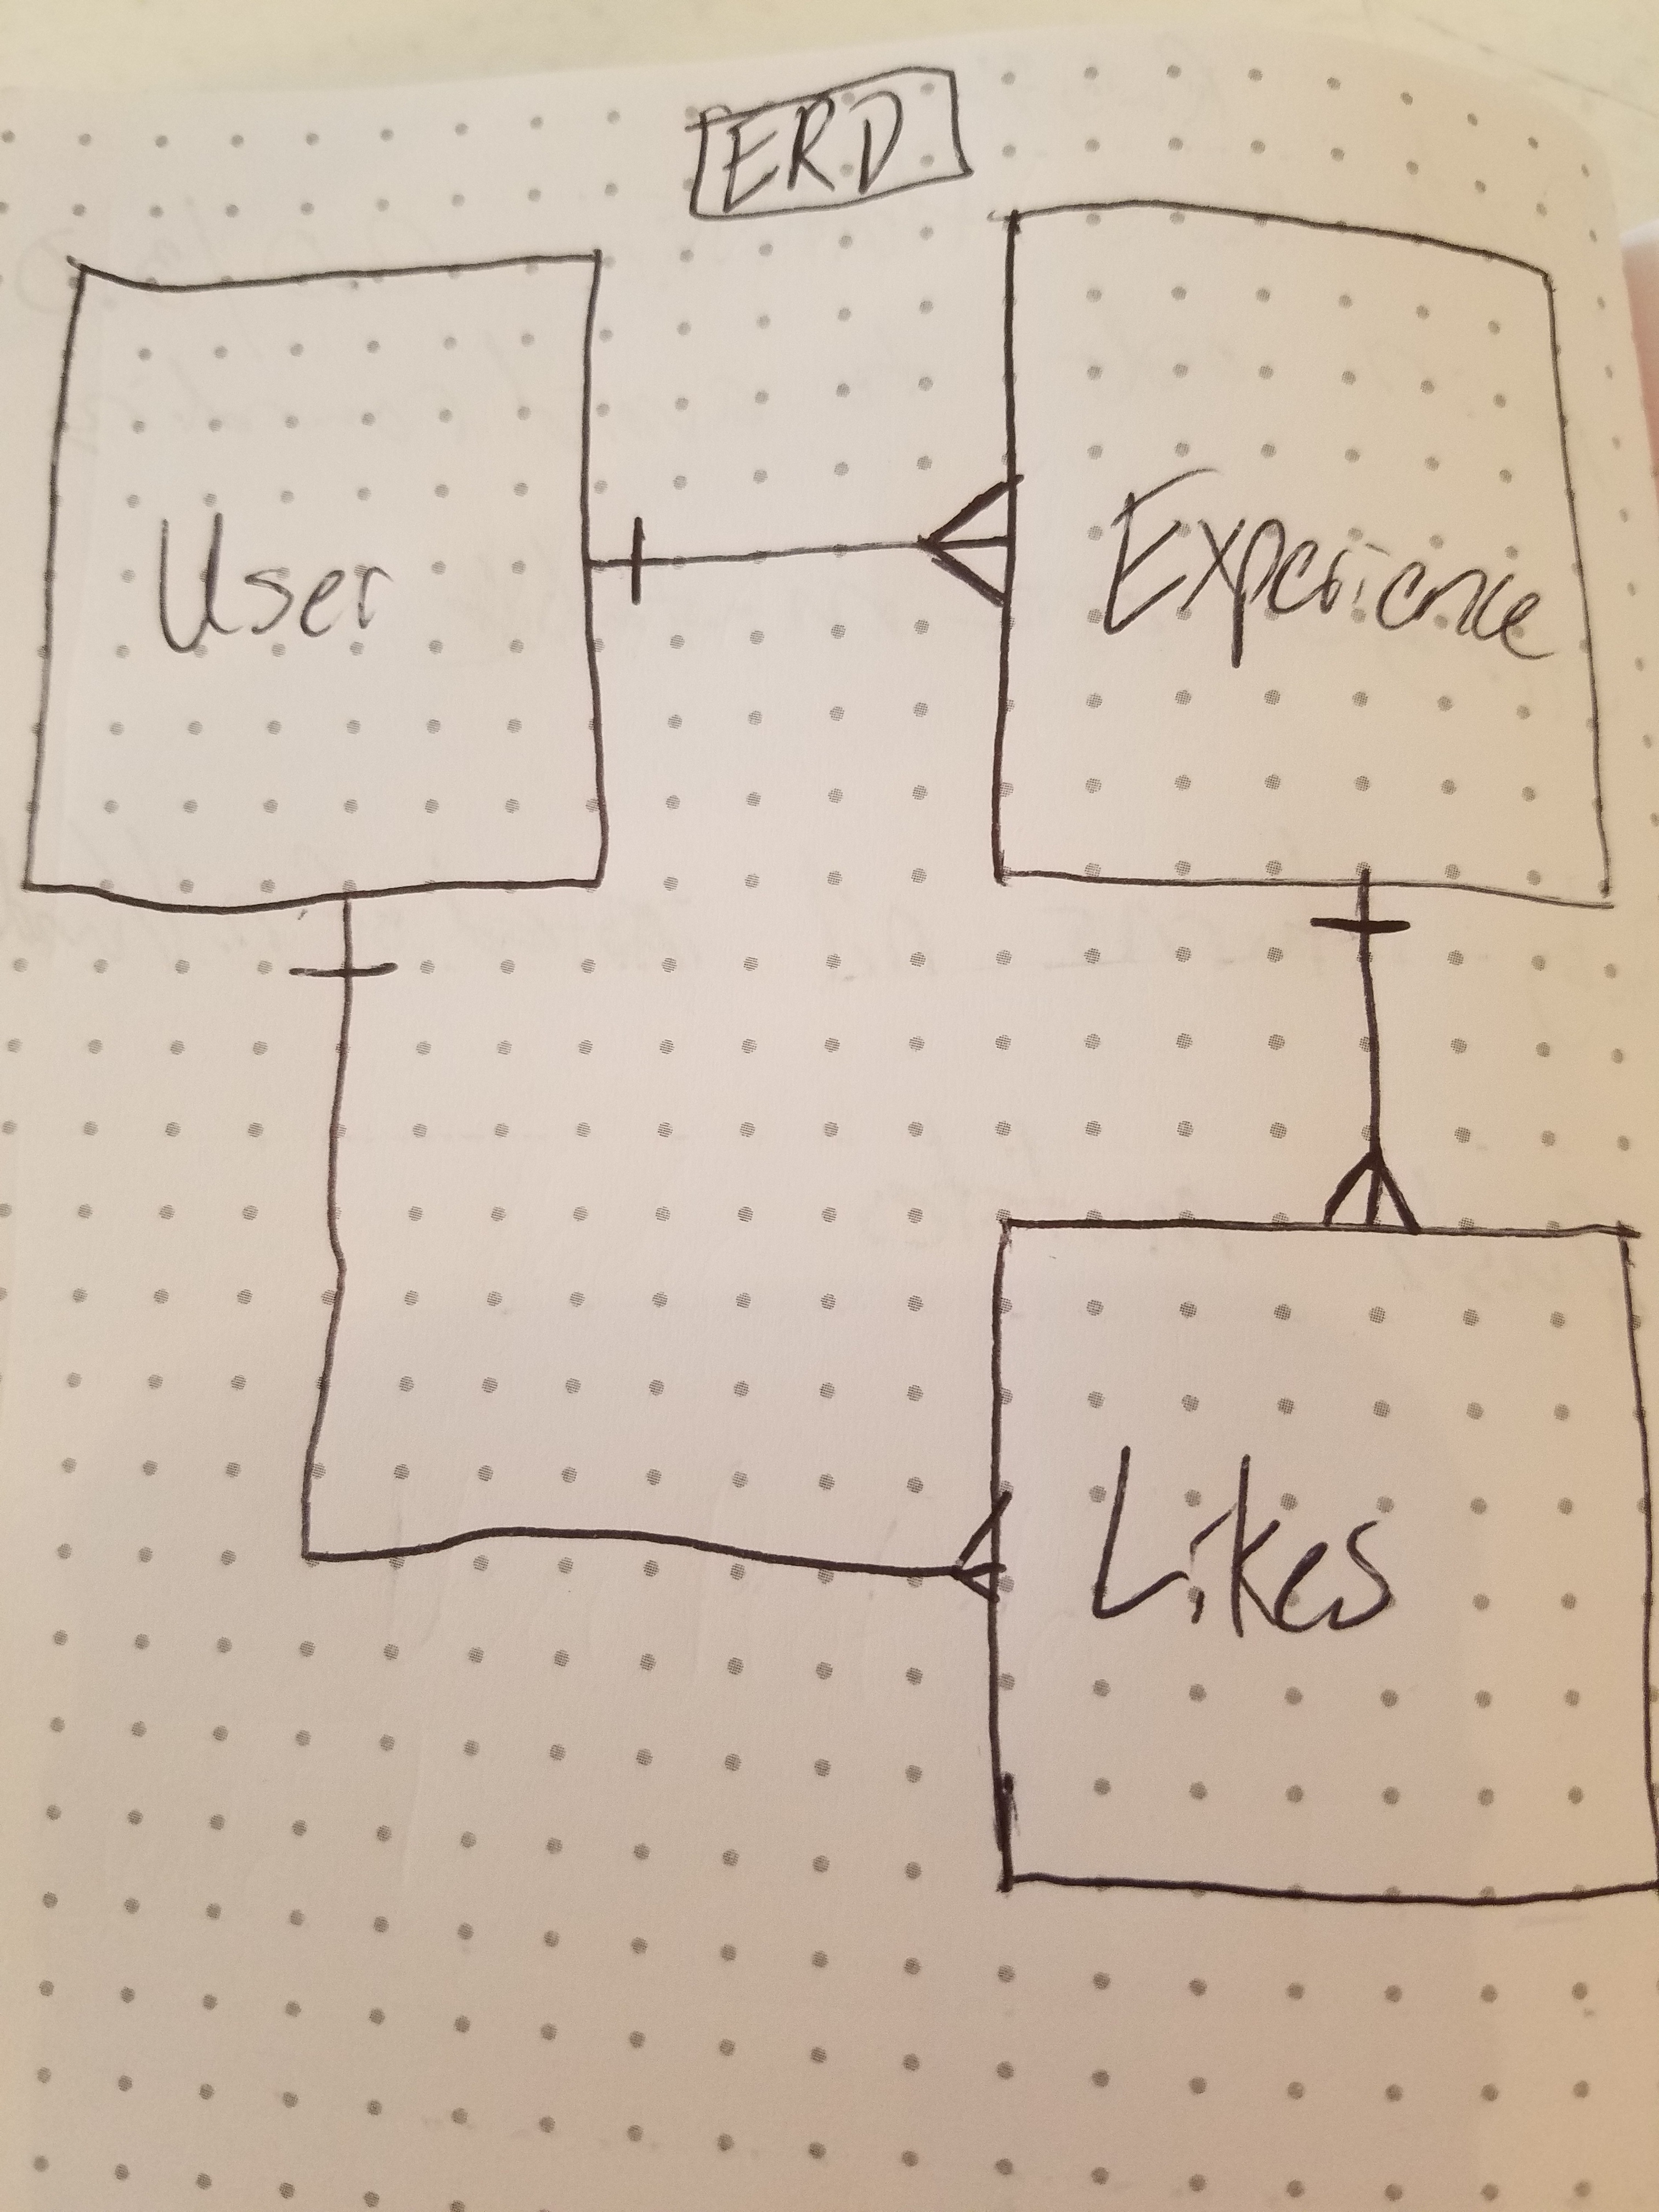 ERD
User
Experience
Likes